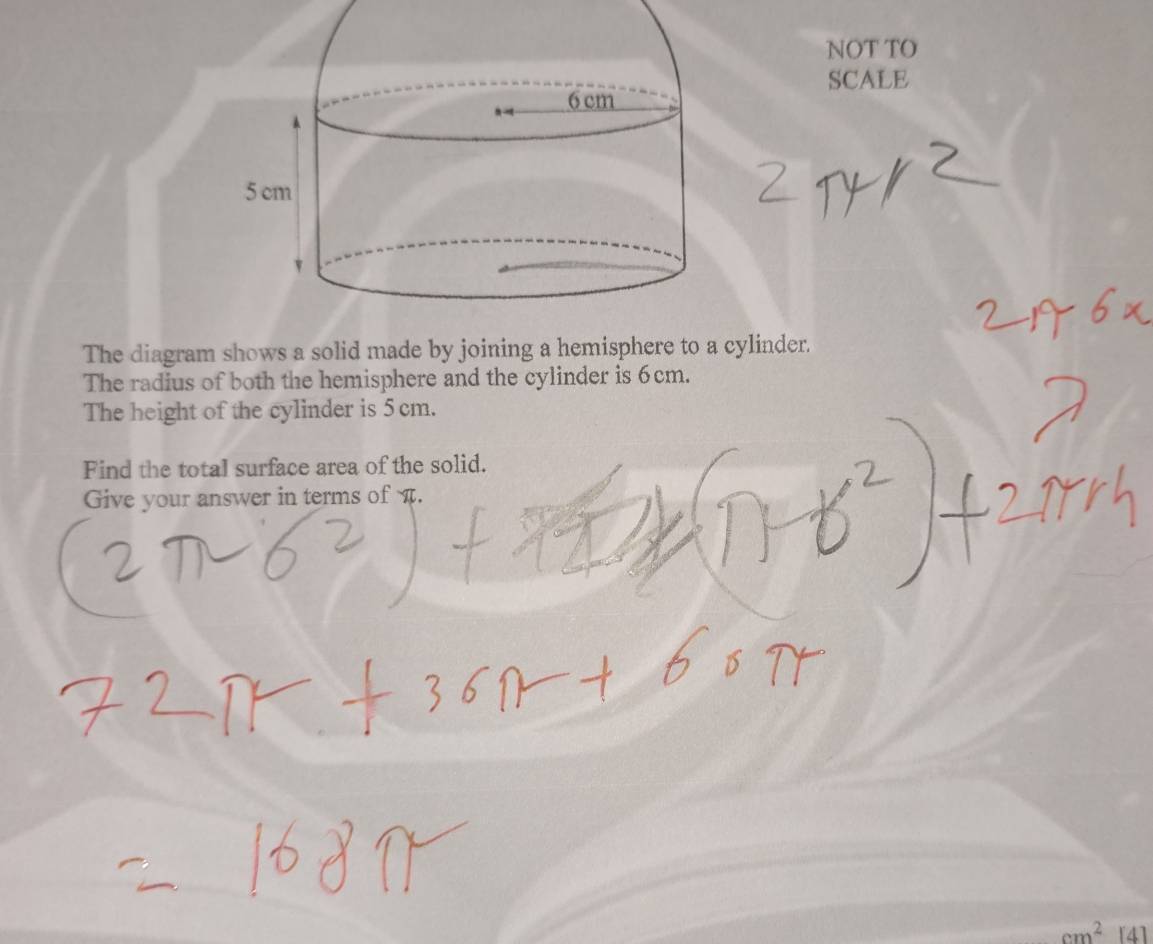 NOT TO
SCALE
6 cm
5 cm
2πr²
2π6x
The diagram shows a solid made by joining a hemisphere to a cylinder.
The radius of both the hemisphere and the cylinder is 6 cm.
The height of the cylinder is 5 cm.
Find the total surface area of the solid.
Give your answer in terms of π.
(2π6²) + (π6²) + 2πrh
72π + 36π + 60π
= 168π
cm² [4]